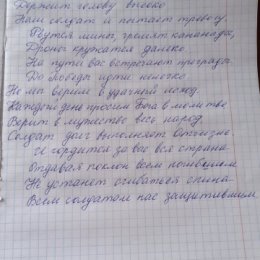 Держит голову высоко
Наш солдат и
Рвутся мины, гремят канонады,
Дроны кружатся далеко
На пути вас встречают преграды
До Победы идти нелегко.
Но мы верим в удачный исход.
Каждый день просим Бога в молитве
Верит в мужество весь народ.
Солдат долг выполняет Отчизне
И гордится за вас вся страна.
Отдавая поклон всем погибшим
Не устанет сгибаться спина
Всем солдатам нас защитившим.